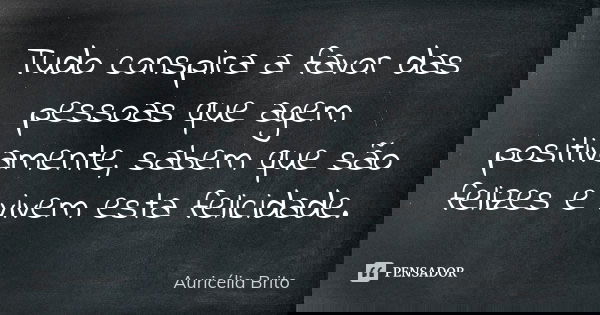 Tudo conspira a favor das
pessoas que agem
positivamente, sabem que são
felizes e vivem esta felicidade.
Auricélia Brito
PENSADOR